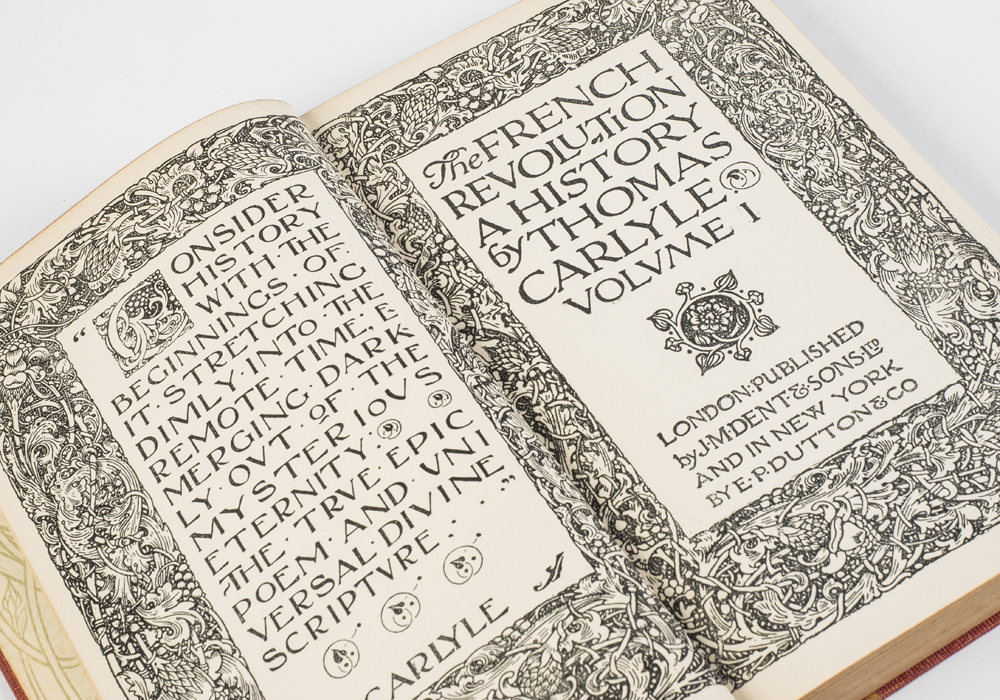 "CONSIDER
HISTORY
WITH·THE
BEGINNINGS·OF
IT·STRETCHING
DIMLY·INTO·THE
REMOTE·TIME; E
MERGING·DARK
LY·OVT·OF·THE
MYSTERIOVS
ETERNITY
THE·TRVE·EPIC
POEM·AND·VNI
VERSAL DIVINE
SCRIPTVRE..."
CARLYLE
The FRENCH
REVOLUTION
A HISTORY
by THOMAS
CARLYLE
VOLVME I
LONDON: PUBLISHED
by J·M·DENT·&·SONS·LTD
AND IN NEW YORK
BY E·P·DUTTON & CO